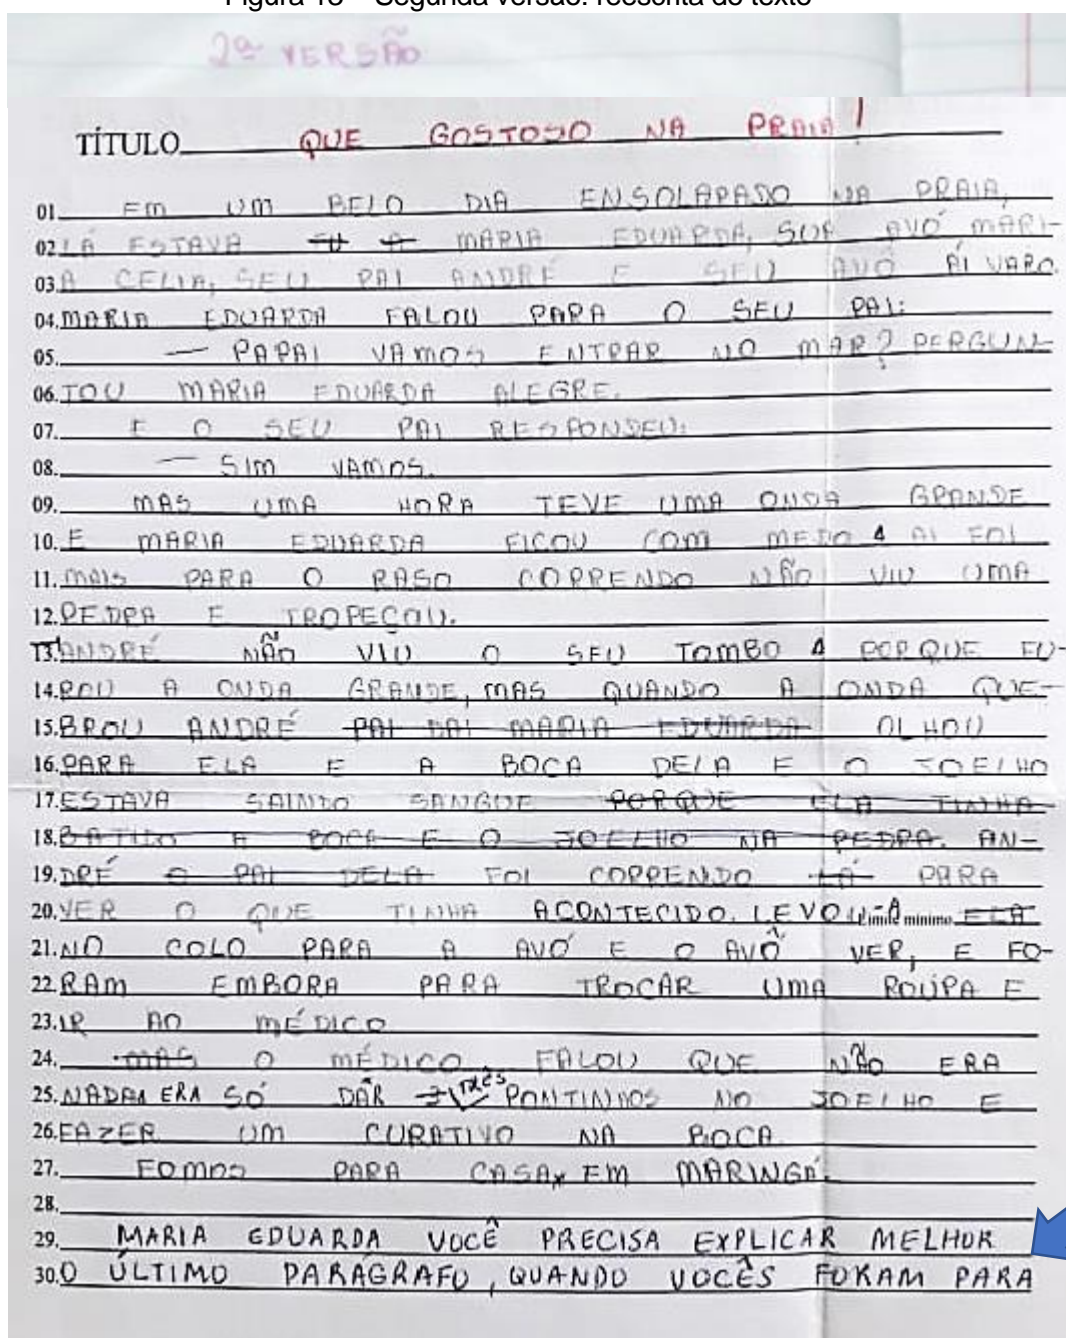 Figura 18 – Segunda versão: reescrita do texto
2ª VERSÃO
TÍTULO QUE GOSTOSO NA PRAIA!
01. EM UM BELO DIA ENSOLARADO NA PRAIA,
02. LÁ ESTAVA MARIA EDUARDA, SUA AVÓ MARI-
03. A CELIA, SEU PAI ANDRÉ E SEU AVÔ ALVARO.
04. MARIA EDUARDA FALOU PARA O SEU PAI:
05. — PAPAI VAMOS ENTRAR NO MAR? PERGUN-
06. TOU MARIA EDUARDA ALEGRE.
07. E O SEU PAI RESPONDEU:
08. — SIM VAMOS.
09. MAS UMA HORA TEVE UMA ONDA GRANDE
10. E MARIA EDUARDA FICOU COM MEDO AI FOI
11. MAIS PARA O RASO CORRENDO NÃO VIU UMA
12. PEDRA E TROPEÇOU.
13. ANDRÉ NÃO VIU O SEU TOMBO PORQUE FU-
14. ROU A ONDA GRANDE, MAS QUANDO A ONDA QUE-
15. BROU ANDRÉ PAI DAI MARIA EDUARDA OLHOU
16. PARA ELA E A BOCA DELA E O JOELHO
17. ESTAVA SAINDO SANGUE PORQUE ELA TINHA
18. BATIDO A BOCA E O JOELHO NA PEDRA. AN-
19. DRÉ O PAI DELA FOI CORRENDO LÁ PARA
20. VER O QUE TINHA ACONTECIDO. LEVO mínimo ELA
21. NO COLO PARA A AVÓ E O AVÔ VER, E FO-
22. RAM EMBORA PARA TROCAR UMA ROUPA E
23. IR AO MÉDICO
24. MAS O MÉDICO FALOU QUE NÃO ERA
25. NADA ERA SÓ DAR 3 TRÊS PONTINHOS NO JOELHO E
26. FAZER UM CURATIVO NA BOCA.
27. FOMOS PARA CASA EM MARINGÁ.
28.
29. MARIA EDUARDA VOCÊ PRECISA EXPLICAR MELHOR
30. O ÚLTIMO PARÁGRAFO, QUANDO VOCÊS FORAM PARA